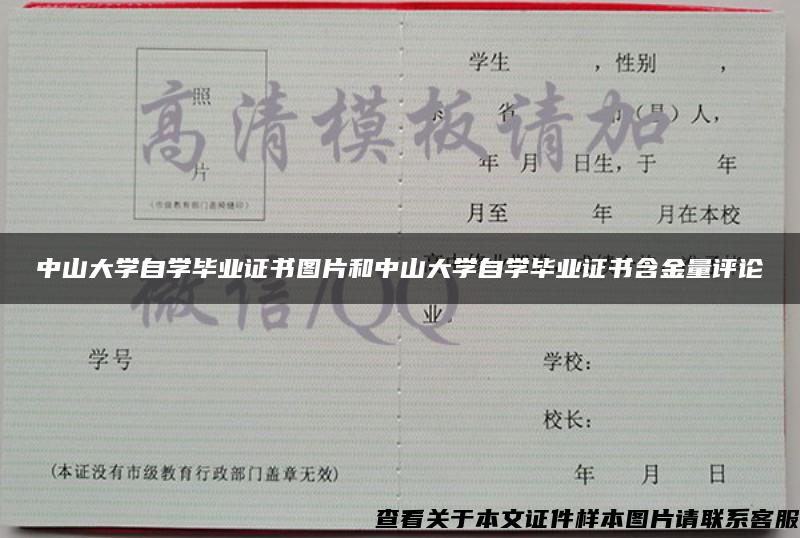 照
片
(市级教育部门盖骑缝印)
学号
(本证没有市级教育行政部门盖章无效)
学生 ，性别 ，
省 （县）人，
年 月 日生，于 年
月至 年 月在本校
业。
学校：
校长：
年 月 日
高清模板请加
微信/QQ
中山大学自学毕业证书图片和中山大学自学毕业证书含金量评论
查看关于本文证件样本图片请联系客服